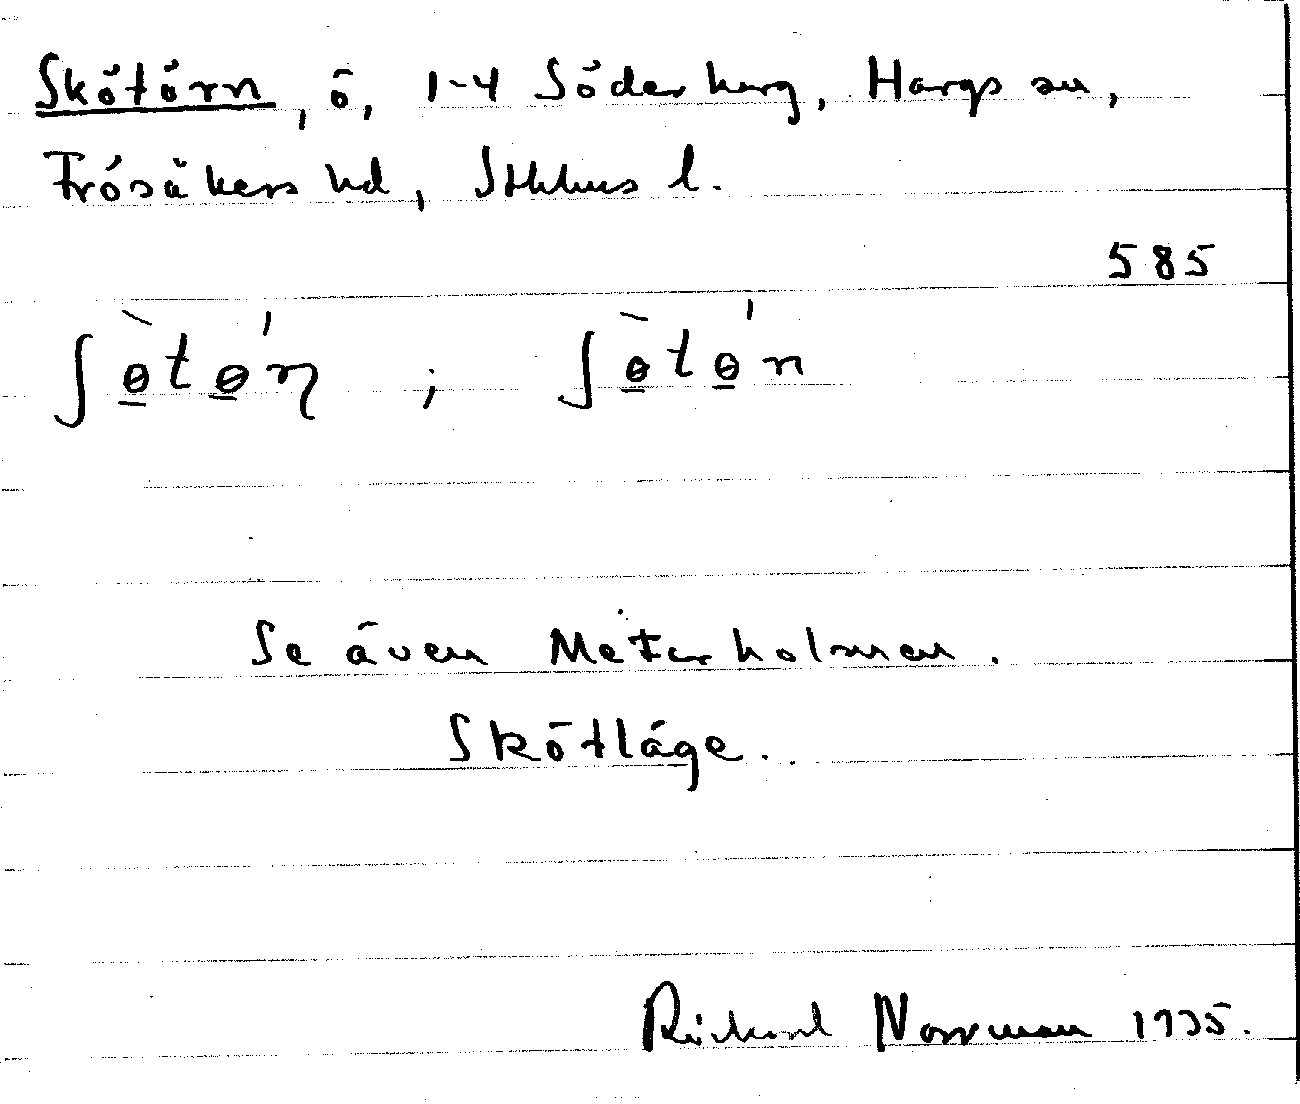 Skötörn, ö, 1-4 Söderharg, Hargs sn,
Frösåkers hd, Sthlms l.
585
ʃɵ̠̀tɵ̠́ɳ ; ʃɵ̠̀tɵ̠́n
Se även Meterholmen.
Skötläge.
Richard Norrman 1935.